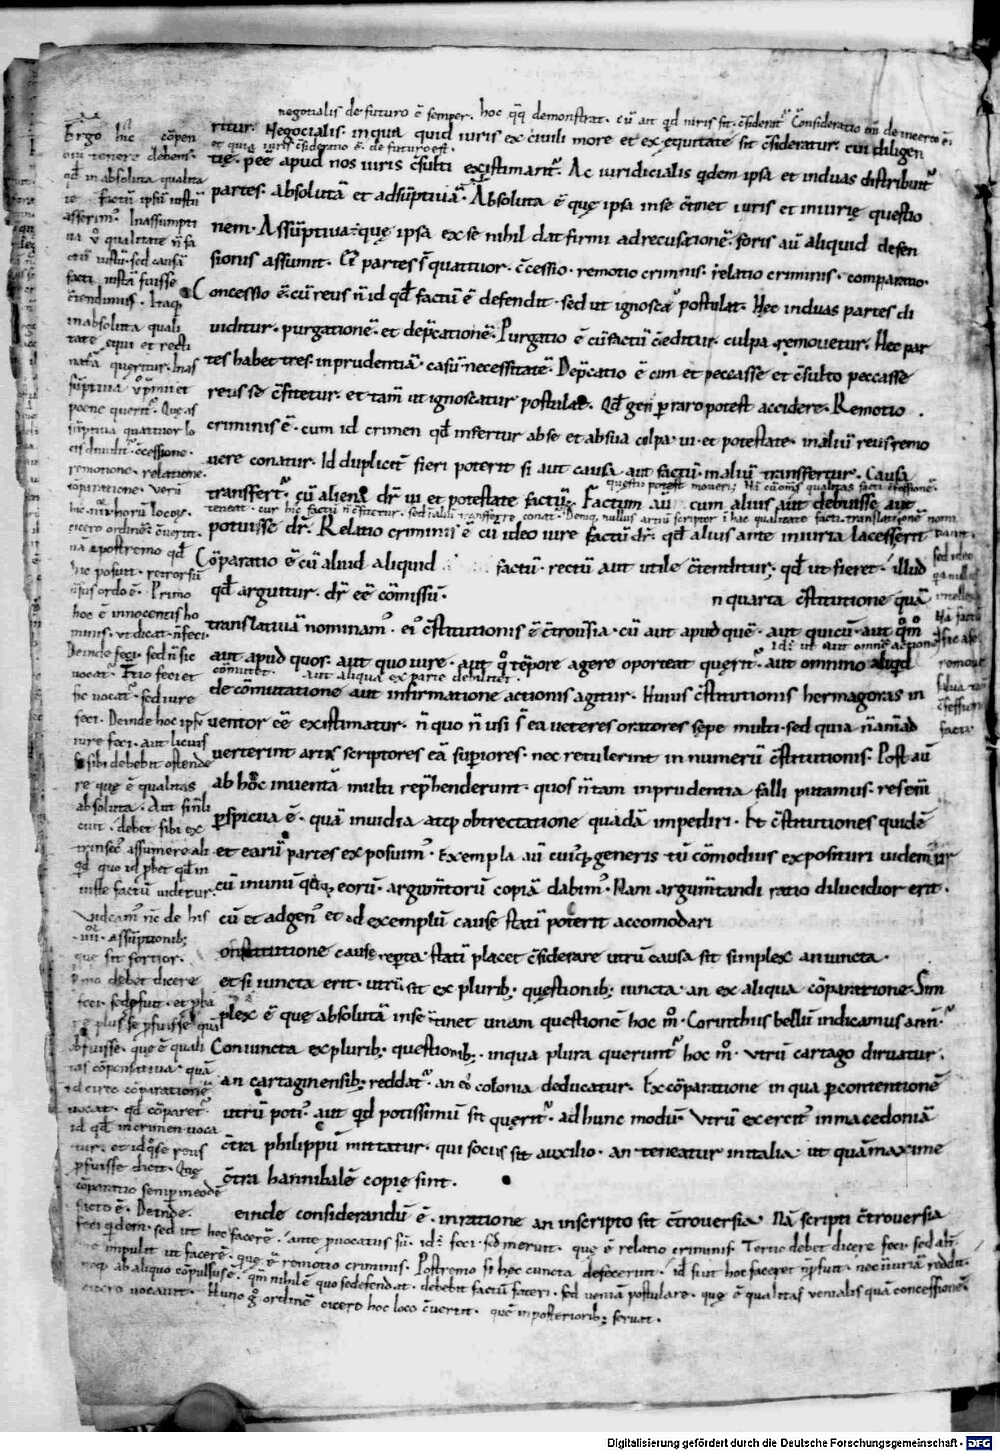 negotialis de futuro ē semper. hoc qq̄ demonstrat. cū ait qd̄ iuris sit. c̄siderat᷑ Consideratio
ritur. Negocialis. in qua quid iuris ex ciuili more et ex equitate sit c̄sideratur. cui diligen
et quia iuris c̄sideratio ē. de futuro est.
tię. p̄eē apud nos iuris c̄sulti existimant᷑. Ac iuridicialis q̄dem ipsa et in duas distribuit᷑
partes. absolutā et adsūptiuā. Absoluta ē quę ipsa in se c̄tinet iuris et iniurię questio
nem. Assūptiua. quę ipsa ex se nihil dat firmi ad recusationē. foris aū aliquid defen
sionis assumit. Ei᷒ partes s̄ quattuor. c̄cessio. remotio criminis. relatio criminis. comparatio.
Concessio ē. cū reus n̄ id qd̄ factū ē defendit. sed ut ignoscat᷑ postulat. Hęc in duas partes di
uiditur. purgationē. et dep̄cationē. Purgatio ē cū factū c̄ceditur. culpa remouetur. Hęc par
tes habet tres. inprudentiā. casū. necessitatē. Dep̄catio ē cum et peccasse et c̄sulto peccasse
reus se c̄fitetur. et tam̄ ut ignoscatur postulat. Qd̄ gen᷒ p raro potest accidere. Remotio
criminis ē. cum id crimen qd̄ infertur ab se et ab sua culpa ui. et potestate. in aliū reus remo
uere conatur. Id dupliciter fieri poterit si aut causa aut factū. in aliū transfertur. Causa
transfert᷑. cū aliena dr̄ ui et potestate factū. Factum aū cum alius aut debuisse aut
potuisse dr̄. Relatio criminis ē cū ideo iure factū dr̄. qd̄ alius ante iniuria lacessierit
Cōparatio ē cū aliud aliquid factū. rectū aut utile c̄tenditur. qd̄ ut fieret. illud
qd̄ arguitur. dr̄ eē cōmissū. n quarta c̄stitutione quā
translatiuā nominam᷒. ei᷒ c̄stitutionis ē c̄trouersia. cū aut apud quē. aut quicū. aut qm̄o
aut apud quos. aut quo iure. aut q̊ tēpore agere oporteat quęrit᷑. aut omnino aliqd
aut aliqua ex parte debilitet.
de cōmutatione aut infirmatione actionis agitur. Huius c̄stitutionis hermagoras in
uentor eē existimatur. n̄ quo n̄ usi s̄ ea ueteres oratores sępe multi. sed quia n̄ animad
uerterint artis scriptores eā supiores. nec retulerint in numerū c̄stitutionis. Post aū
ab hoc inuentā multi rep̄henderunt. quos n̄ tam inprudentia falli putamus. res enī
perspicua ē. quā inuidia atq obtrectatione quadā impediri. Et c̄stitutiones quidē
et earū partes exposuim᷒. Exempla aū cuiusq generis tū cōmodius exposituri uidemur
cū in unū quęq eorū argumtorū copiā dabim᷒. Nam argumtandi ratio dilucidior erit.
cū et ad gen᷒ et ad exemplū cause statī poterit accomodari
onstitutione cause reperta statī placet c̄siderare utrū causa sit simplex an iuncta.
et si iuncta erit. utrū sit ex plurib; quęstionib; iuncta. an ex aliqua cōparatione. Sim
plex ē quę absolutā in se c̄tinet unam questionē hoc m̊. Corinthus bellū indicamus an n̄.
Coniuncta ex plurib; questionib;. in qua plura querunt᷑ hoc m̊. Vtrū cartago diruatur.
an cartaginensib; reddat᷑. an eo colonia deducatur. Ex cōparatione in qua p contentionē
utrū poti᷒. aut qd potissimū sit quęrit᷑. ad hunc modū. Vtrū exercit᷒ in macedoniā
c̄tra philippū mittatur. qui sociis sit auxilio. an teneatur in italia ut quā maxime
c̄tra hannibalē copię sint.
einde considerandū ē. in ratione an in scripto sit c̄trouersia. Nā scripti c̄trouersia
Ergo hic
oiu tenere debem᷒.
qd̄ in absoluta qualita
te factū ipsū iustū
asserim᷒. In assumpti
ua ū qualitate n̄ fa
ctū iustū. sed causā
facti iustā fuisse
c̄tendimus. Itaq
in absoluta quali
tate equi et recti
natā queritur. In as
sūptiua ū p̄mii et
poene querit᷑. Quę as
sūptiua quattuor lo
cis diuidit᷑. c̄cessione.
remotione. relatione.
cōparatione. Verū
cicero ordinē c̄uertit.
hic posuit. retrorsū
n̄ sus ordo ē. Primo
hoc ē innocentis ho
minis. ut dicat. n̄ feci.
Deinde feci. sed n̄ sic
uocat᷑. Tertio feci et
sic uocat᷑. sed iure
feci. Deinde hoc ipsū
iure feci. aut licuis
se sibi debebit ostende
re quę ē qualitas
absoluta. Aut si n̄ li
cuit. debet sibi ex
trinsec᷒ assumere ali
qd quo id p̄bet qd̄ in
iuste factū uidetur.
Videam᷒ nc̄ de his
.iiii. assūptionib;
quę sit fortior.
Primo debet dicere
feci. sed p̄fuit. et p̄ba
re plus se p̄fuisse quā
obfuisse. quę ē quali
tas cōpensatiua. quā
id circo cōparationē
uocat. qd cōparet᷑
id qd̄ in crimen uoca
tur. et id q̊ se reus
p̄fuisse dicit. Quę
cōparatio semp in eodē
facto ē. Deinde.
feci q̄dem. sed ut hoc facerē. ante p̄uocatus sū. id ē feci. sed meruit. quę ē relatio criminis. Tertio debet dicere feci. sed ali᷒
me impulit ut facerē. quę ē remotio criminis. Postremo si hęc cuncta defecerint.
neq ab aliquo cōpulsus ē. qm̄ nihil ē quo se defendat. debebit factū fateri. sed ueniam postulare. quę ē qualitas uenialis quā concessionē
cicero uocauit. Hunc g̊ ordinē cicero hoc loco c̄uertit. quē in posteriorib; seruat.
Digitalisierung gefördert durch die Deutsche Forschungsgemeinschaft - DFG